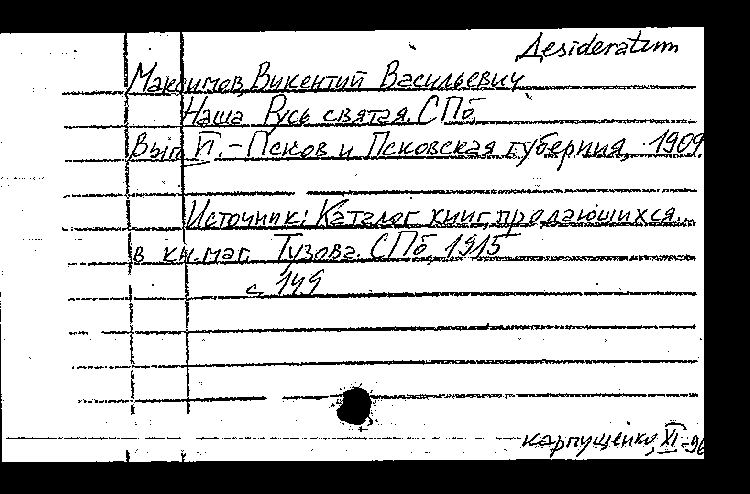 Desideratum
Максимов, Викентий Васильевич
Наша Русь святая. СПб,
Вып. VI. – Псков и Псковская губерния, 1909.
Источник: Каталог книг, продающихся...
в кн. маг. Тузова. СПб, 1915
с. 149
Карпущенко, XI-96